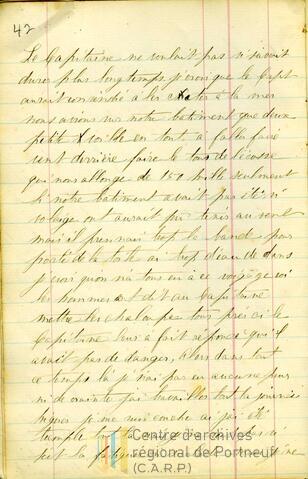 42
Le Capitaine ne voulait pas si savait
durer plus longtemps j'crois que le Capt
aurait commandé à les à la mer
nous avions sur notre batiment que deux
petite voille en tout a fallu faire
vent derrière faire le tour de l'écosse
qui nous allonge de 150 mille seulement
si notre batiment avait pas été si
volage ont aurait pu tenir au vent
mais il prennait trop le bord pas
porté de la toile ai trop d'eau de dans
j'crois qu'on n'a tous eu à ce voyage ici
les hommes ont dit au Capitaine
mettre les chaloupe tous près ici le
Capitaine leur a fait réponse qu'il y
avait pas de danger, alors dans tout
ce temps là j'avais pas eu aucune peur
ni de crainte j'ai travaillé tout la journée
j'me suis couché ai j'ai été
trempé tout la
Centre d'archives
régional de Portneuf
(C.A.R.P.)